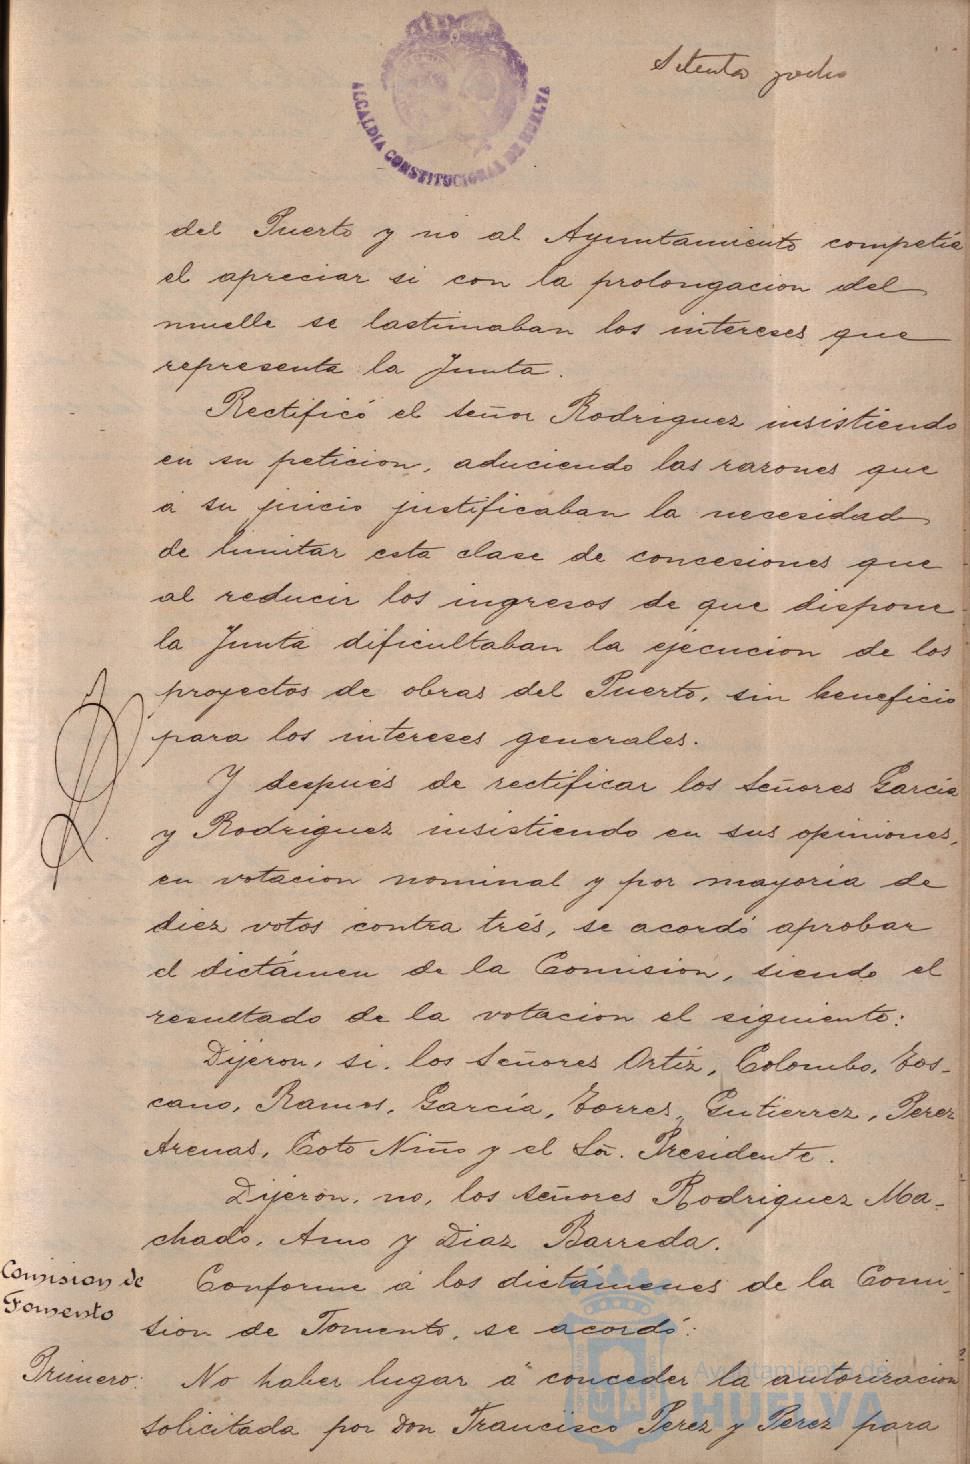 Setenta y ocho
ALCALDIA CONSTITUCIONAL DE HUELVA
del Puerto y no al Ayuntamiento competía
el apreciar si con la prolongacion del
muelle se lastimaban los intereses que
representa la Junta.
Rectificó el señor Rodriguez insistiendo
en su peticion, aduciendo las razones que
á su juicio justificaban la necesidad
de limitar esta clase de concesiones que
al reducir los ingresos de que dispone
la Junta dificultaban la ejecucion de los
proyectos de obras del Puerto, sin beneficio
para los intereses generales.
Y después de rectificar los Señores García
y Rodriguez insistiendo en sus opiniones,
en votacion nominal y por mayoría de
diez votos contra trés, se acordó aprobar
el dictámen de la Comision, siendo el
resultado de la votacion el siguiente:
Dijeron, si, los Señores Ortíz, Colombo, Tos-
cano, Ramos, García, Torres, Gutierrez, Perez
Arenas, Coto Niño y el Sr. Presidente.
Dijeron, no, los señores Rodriguez Ma-
chado, Amo y Diaz Barreda.
Comision de
Fomento
Conforme á los dictámenes de la Comi-
sion de Fomento, se acordó:
Primero: No haber lugar á conceder la autorizacion
solicitada por Don Francisco Perez y Perez para
Ayuntamiento de
HUELVA